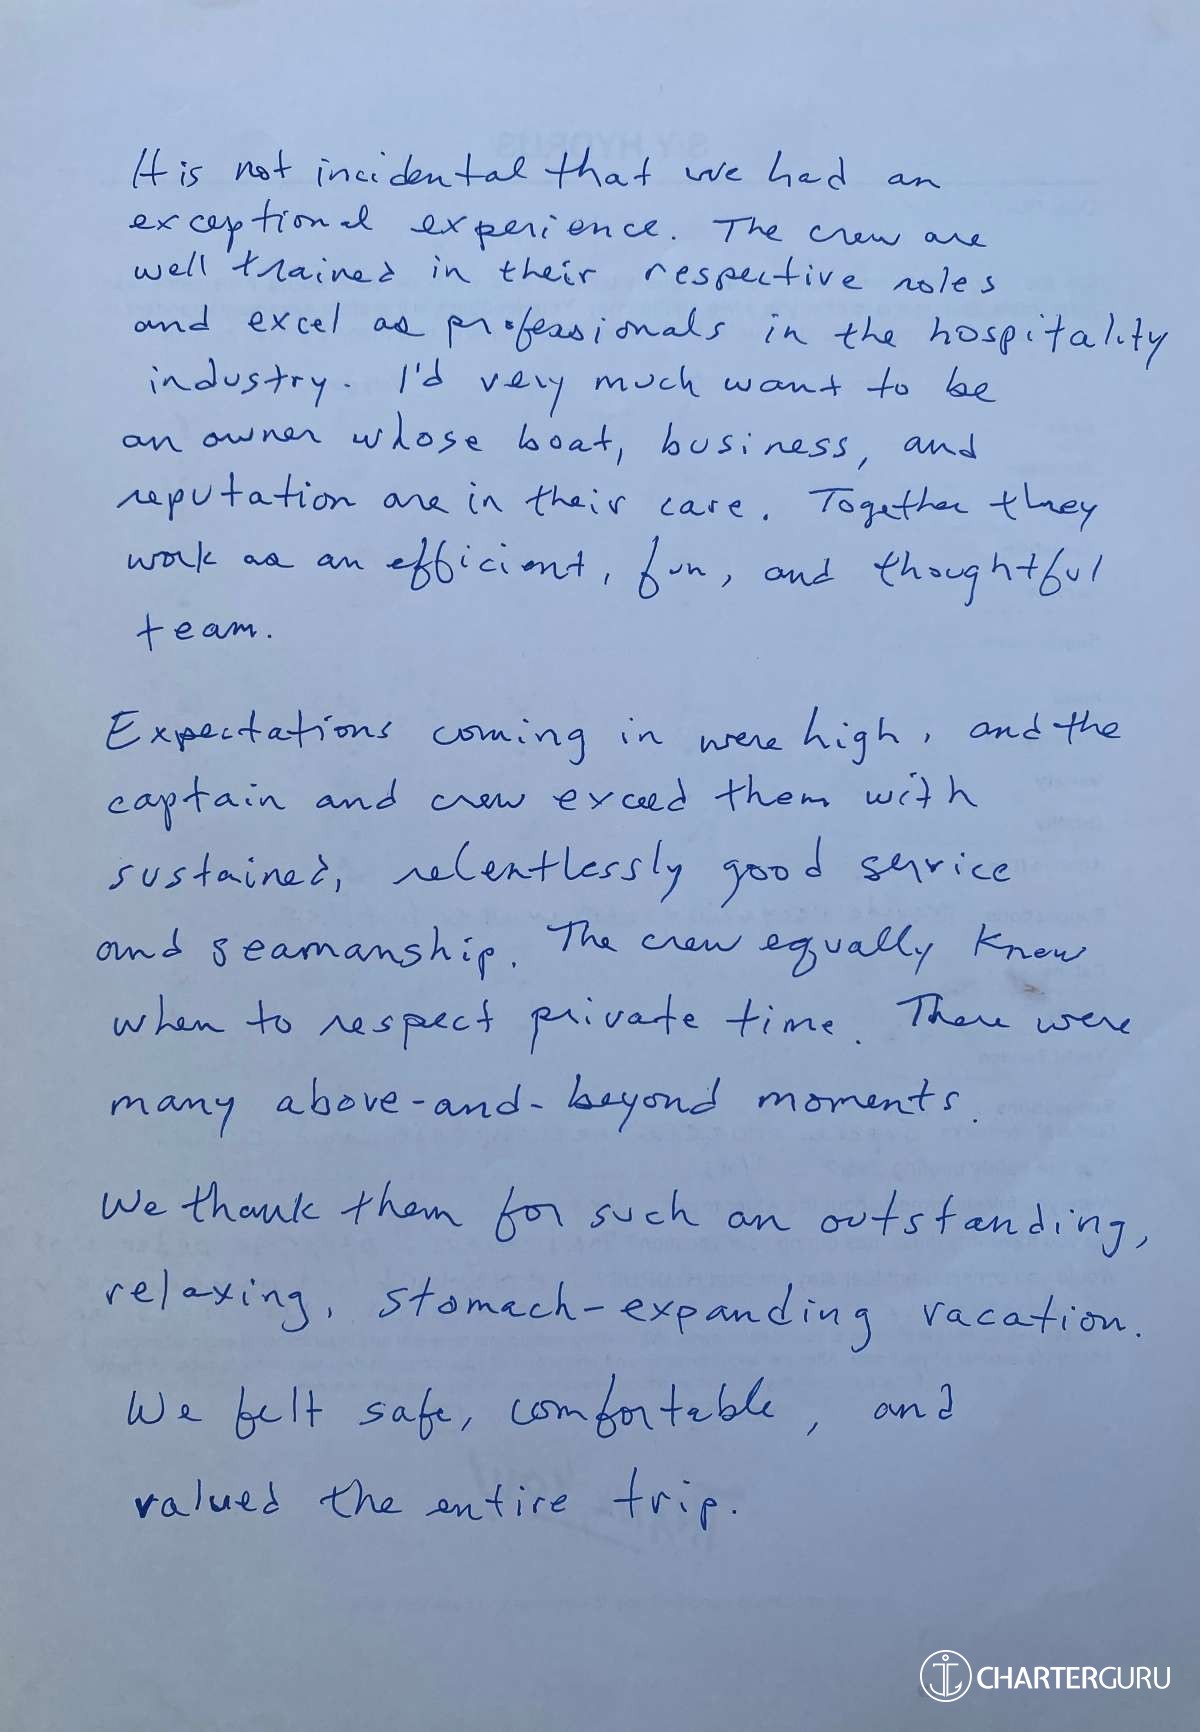 It is not incidental that we had an
exceptional experience. The crew are
well trained in their respective roles
and excel as professionals in the hospitality
industry. I'd very much want to be
an owner whose boat, business, and
reputation are in their care. Together they
work as an efficient, fun, and thoughtful
team.
Expectations coming in were high, and the
captain and crew exceed them with
sustained, relentlessly good service
and seamanship. The crew equally knew
when to respect private time. There were
many above-and-beyond moments.
We thank them for such an outstanding,
relaxing, stomach-expanding vacation.
We felt safe, comfortable, and
valued the entire trip.
CHARTERGURU